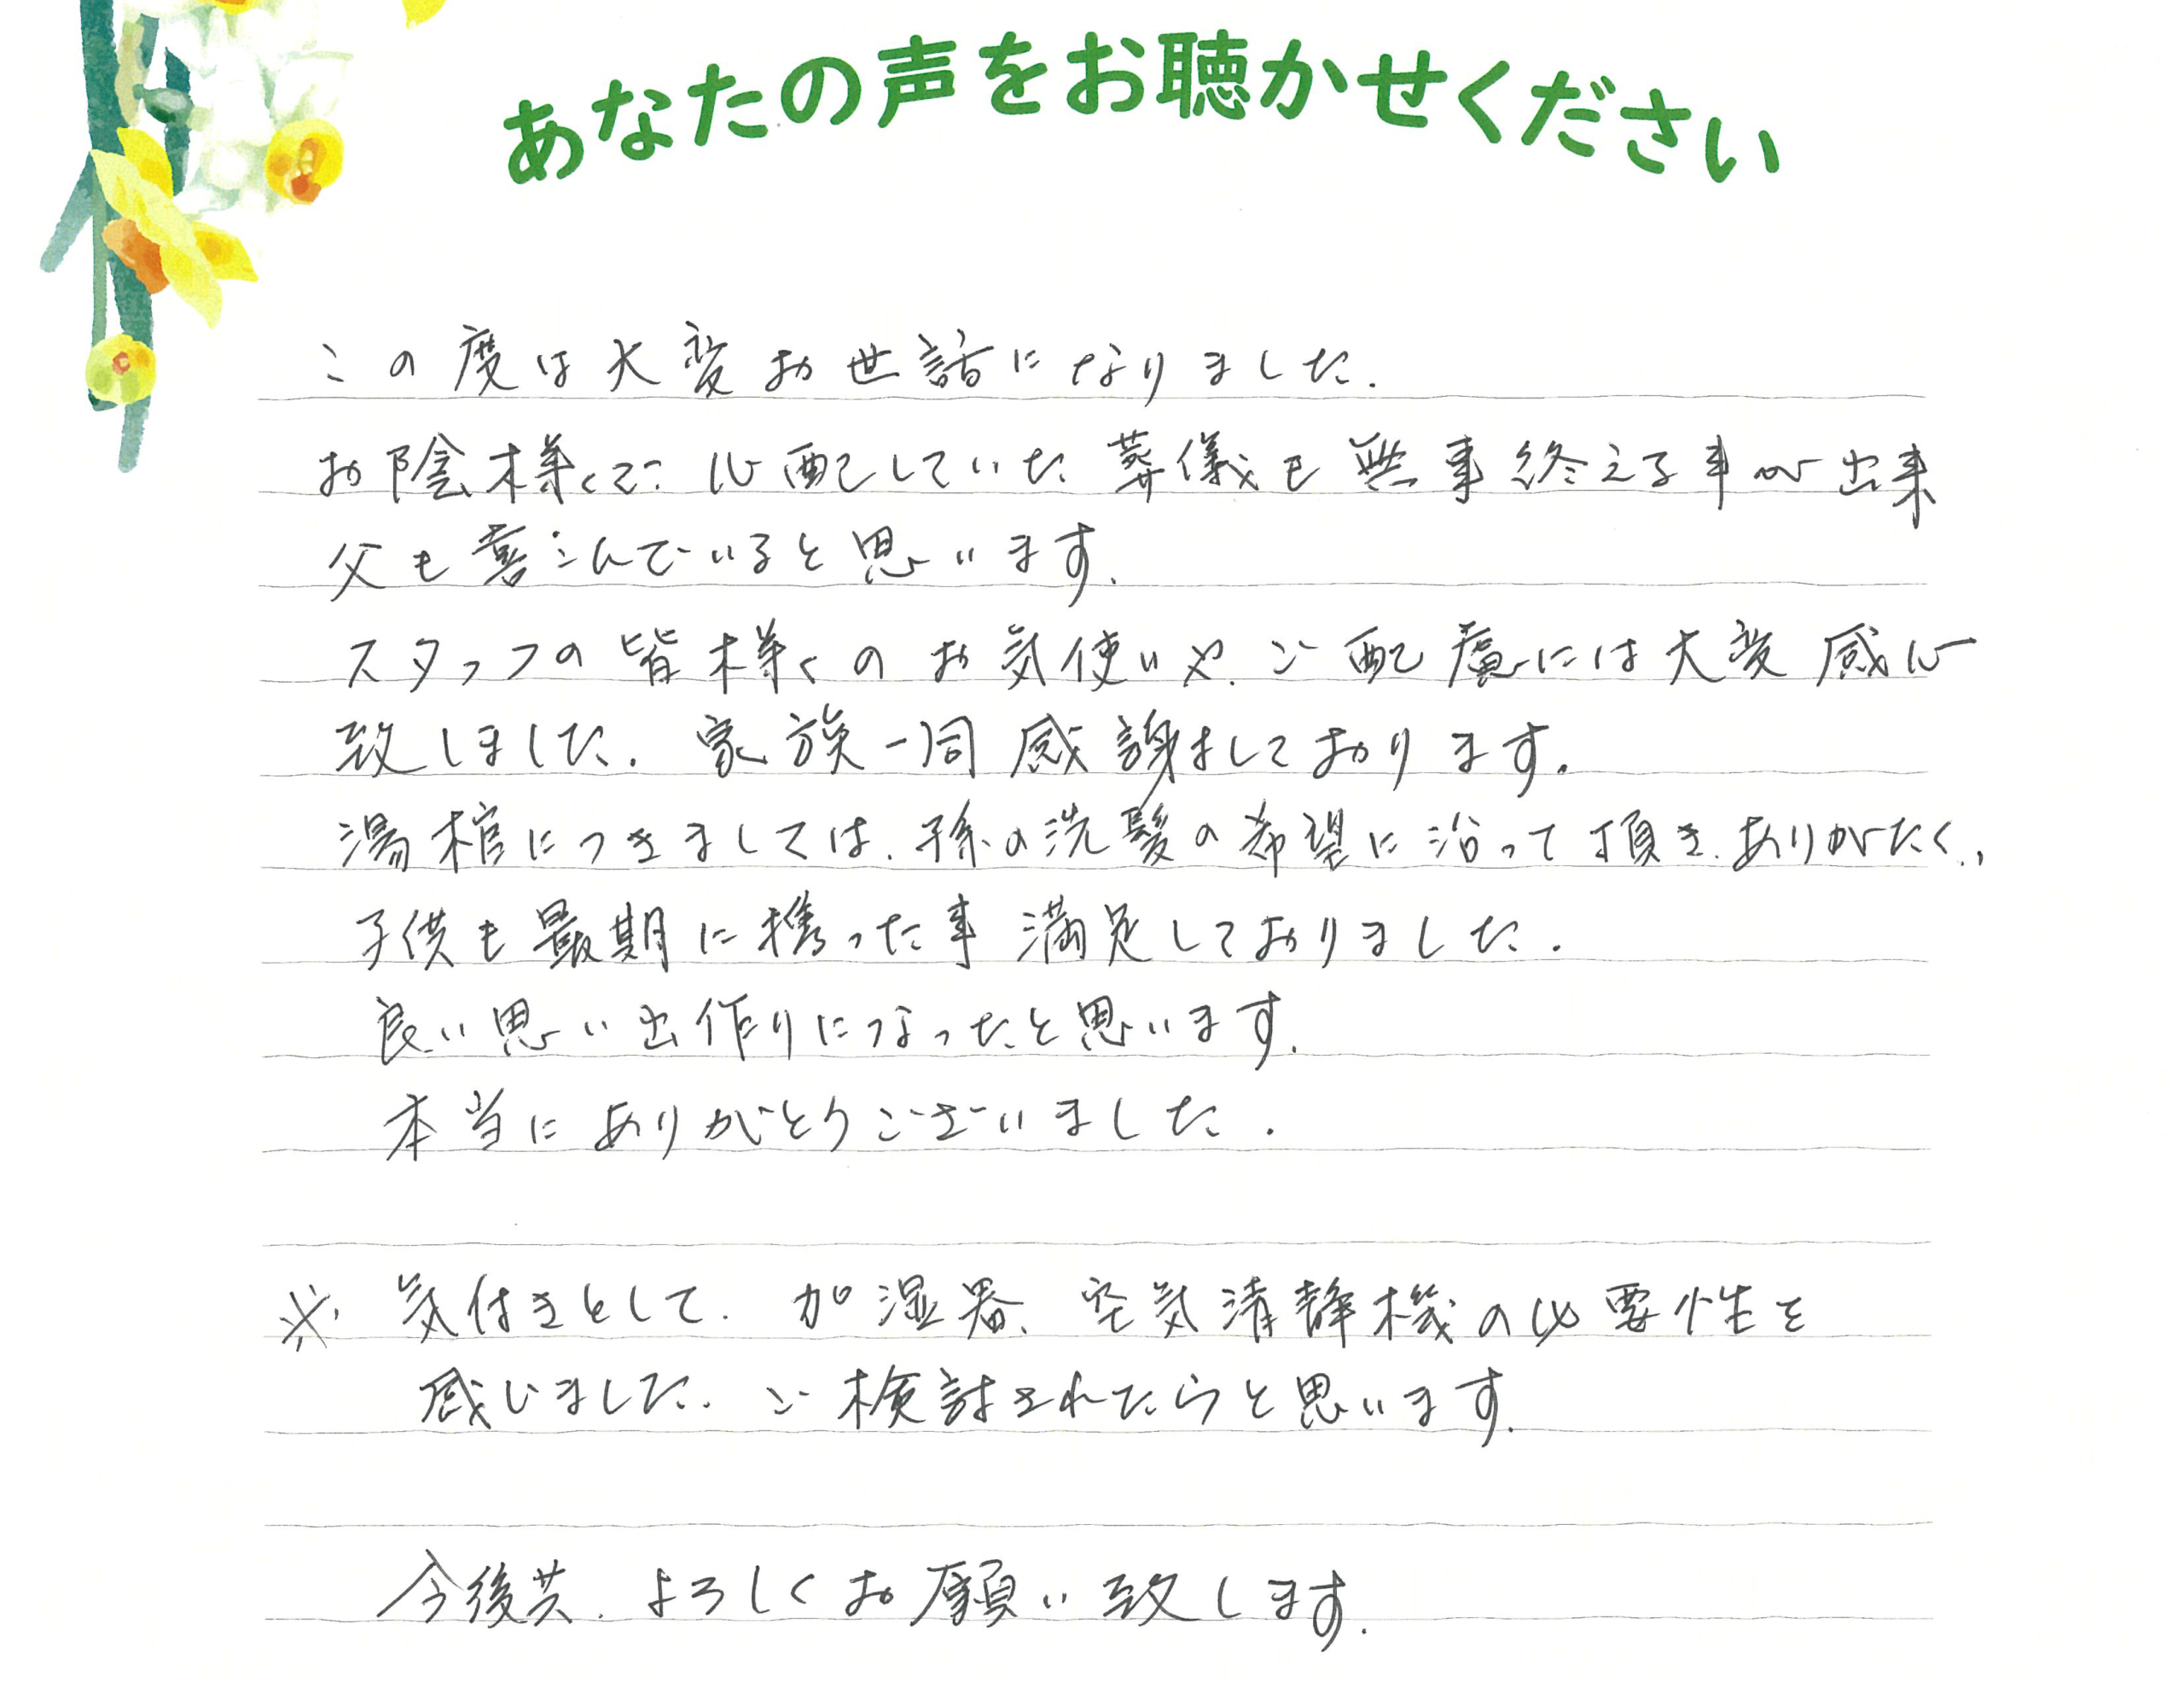 あなたの声をお聴かせください
この度は大変お世話になりました.
お陰様で 心配していた葬儀も無事終える事が出来
父も喜こんでいると思います.
スタッフの皆様のお気使いや、ご配慮には大変感心
致しました. 家族一同感謝しております.
湯棺につきましては、孫の洗髪の希望に沿って頂き、ありがたく、
子供も最期に携った事満足しておりました.
良い思い出作りになったと思います.
本当にありがとうございました.
※ 気付きとして、加湿器、空気清静機の必要性を
感じました. ご検討されたらと思います.
今後共、よろしくお願い致します.